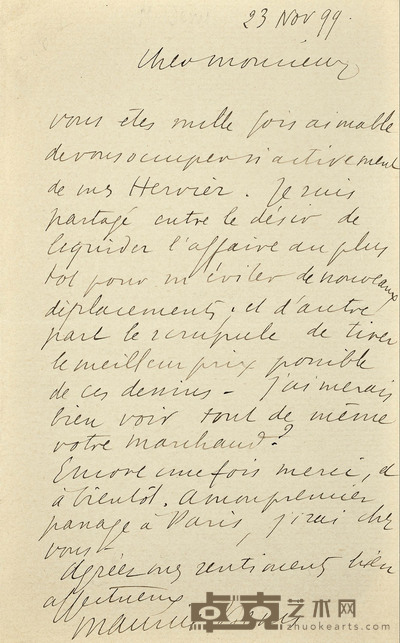 23 Nov 99.
cher monsieur
vous êtes mille fois aimable
de vous occuper si activement
de mes Hervier. Je suis
partagé entre le désir de
liquider l'affaire au plus
tot pour m'éviter de nouveaux
déplacements, et d'autre
part le scrupule de tirer
le meilleur prix possible
de ces dessins - J'aimerais
bien voir tout de même
votre marchand?
Encore une fois merci, et
à bientôt. A mon premier
passage à Paris, j'irai chez
vous -
Agréez mes sentiments bien
affectueux
Maurice
卓克艺术网
zhuokearts.com